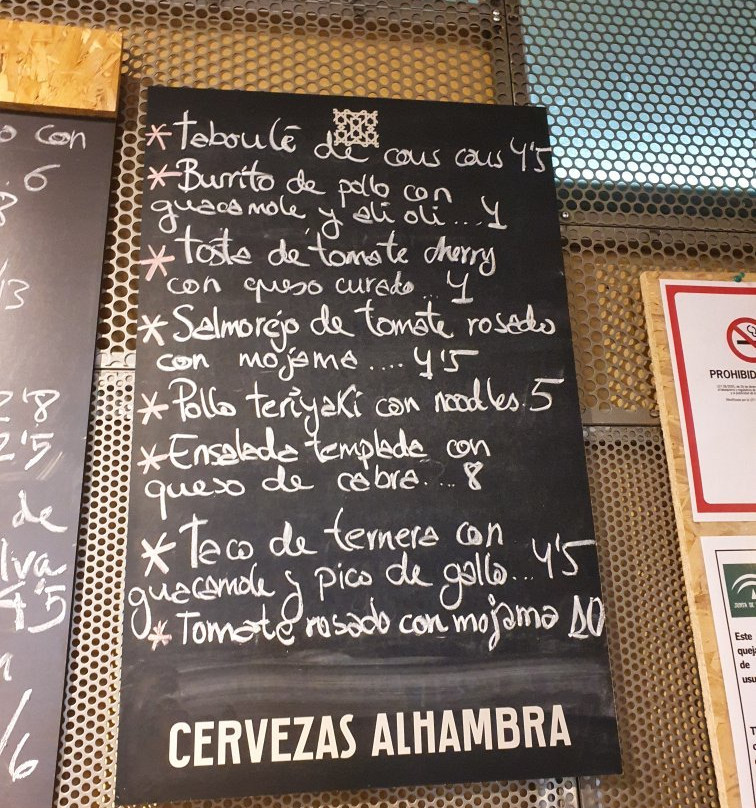 o con
6
8
/3
2'8
2'5
de
lva
4'5
/6
* Teboulé de cous cous 4'5
* Burrito de pollo con
guacamole y ali oli... 4
* Tosta de tomate cherry
con queso curado.. 4
* Salmorejo de tomate rosado
con mojama.... 4'5
* Pollo teriyaki con noodles. 5
* Ensalada templada con
queso de cabra.... 8
* Taco de ternera con
guacamole y pico de gallo... 4'5
* Tomate rosado con mojama 10
CERVEZAS ALHAMBRA
PROHIBID
JUNTA DE
Este
queja
de
usu